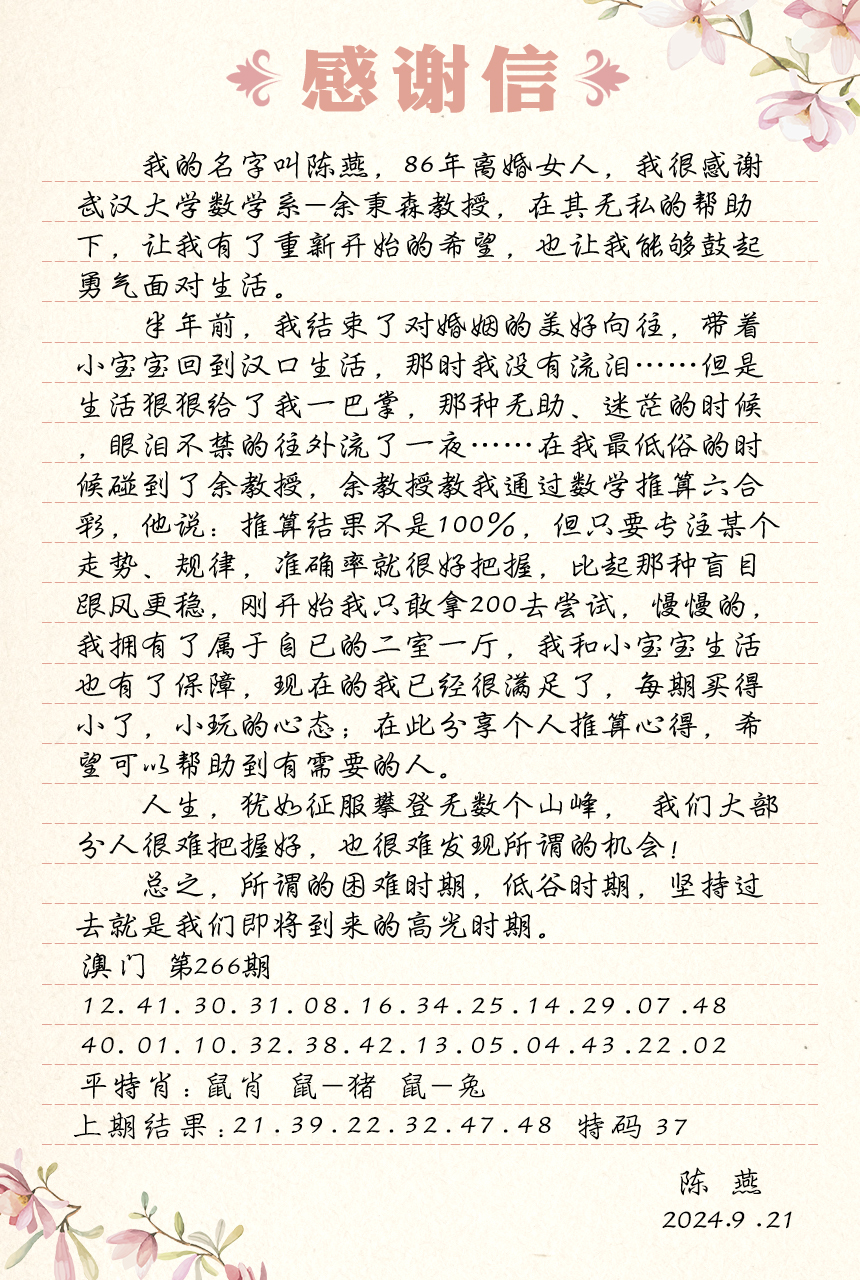 感谢信
我的名字叫陈燕，86年离婚女人，我很感谢
武汉大学数学系—余秉森教授，在其无私的帮助
下，让我有了重新开始的希望，也让我能够鼓起
勇气面对生活。
半年前，我结束了对婚姻的美好向往，带着
小宝宝回到汉口生活，那时我没有流泪……但是
生活狠狠给了我一巴掌，那种无助、迷茫的时候
，眼泪不禁的往外流了一夜……在我最低俗的时
候碰到了余教授，余教授教我通过数学推算六合
彩，他说：推算结果不是100%，但只要专注某个
走势、规律，准确率就很好把握，比起那种盲目
跟风更稳，刚开始我只敢拿200去尝试，慢慢的，
我拥有了属于自已的二室一厅，我和小宝宝生活
也有了保障，现在的我已经很满足了，每期买得
小了，小玩的心态；在此分享个人推算心得，希
望可以帮助到有需要的人。
人生，犹如征服攀登无数个山峰， 我们大部
分人很难把握好，也很难发现所谓的机会！
总之，所谓的困难时期，低谷时期，坚持过
去就是我们即将到来的高光时期。
澳门 第266期
12.41.30.31.08.16.34.25.14.29.07.48
40.01.10.32.38.42.13.05.04.43.22.02
平特肖：鼠肖 鼠—猪 鼠—兔
上期结果：21.39.22.32.47.48 特码 37
陈 燕
2024.9.21